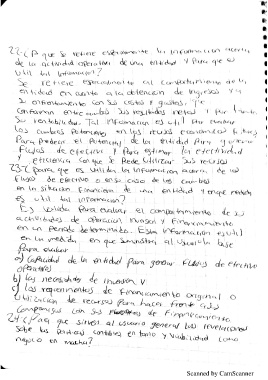 22-¿A que se refiere esencialmente la información acerca
de la actividad operativa de una entidad y Para que es
util tal información?
Se refiere especialmente al comportamiento de la
entidad en cuanto a la obtención de ingresos y
su enfrentamiento con sus costos y gastos, que
conforman entre ambos sus resultados netos y por tanto
su rentabilidad. Tal información es util Para evaluar
los cambios Potenciales en los recursos económicos futuros
Para Predecir el Potencial de la entidad Para generar
flujos de efectivo y Para estimar la efectividad
y eficiencia con que se Puede Utilizar sus recursos
23-¿Para que es valida la información acerca de los
flujos de efectivo o en su caso de los cambios
en la situación Financiera de una entidad y en que medida
es util tal información?
Es valida Para evaluar el comportamiento de su
actividades de operación, inversión y Financiamiento
en un Periodo determinado. Esta información es util
en la medida, en que suministra al Usuario la base
para evaluar
a) Capacidad de la entidad para generar Flujos de efectivo
operativo
b) las necesidades de inversión y
c) los requerimientos de Financiamiento original o
Utilización de recursos Para hacer frente a sus
compromisos con sus fuentes de Financiamiento
24-¿Para que sirven al usuario general los
sobre las partidas contables en torno y viabilidad como
negocio en marcha?
Scanned by CamScanner